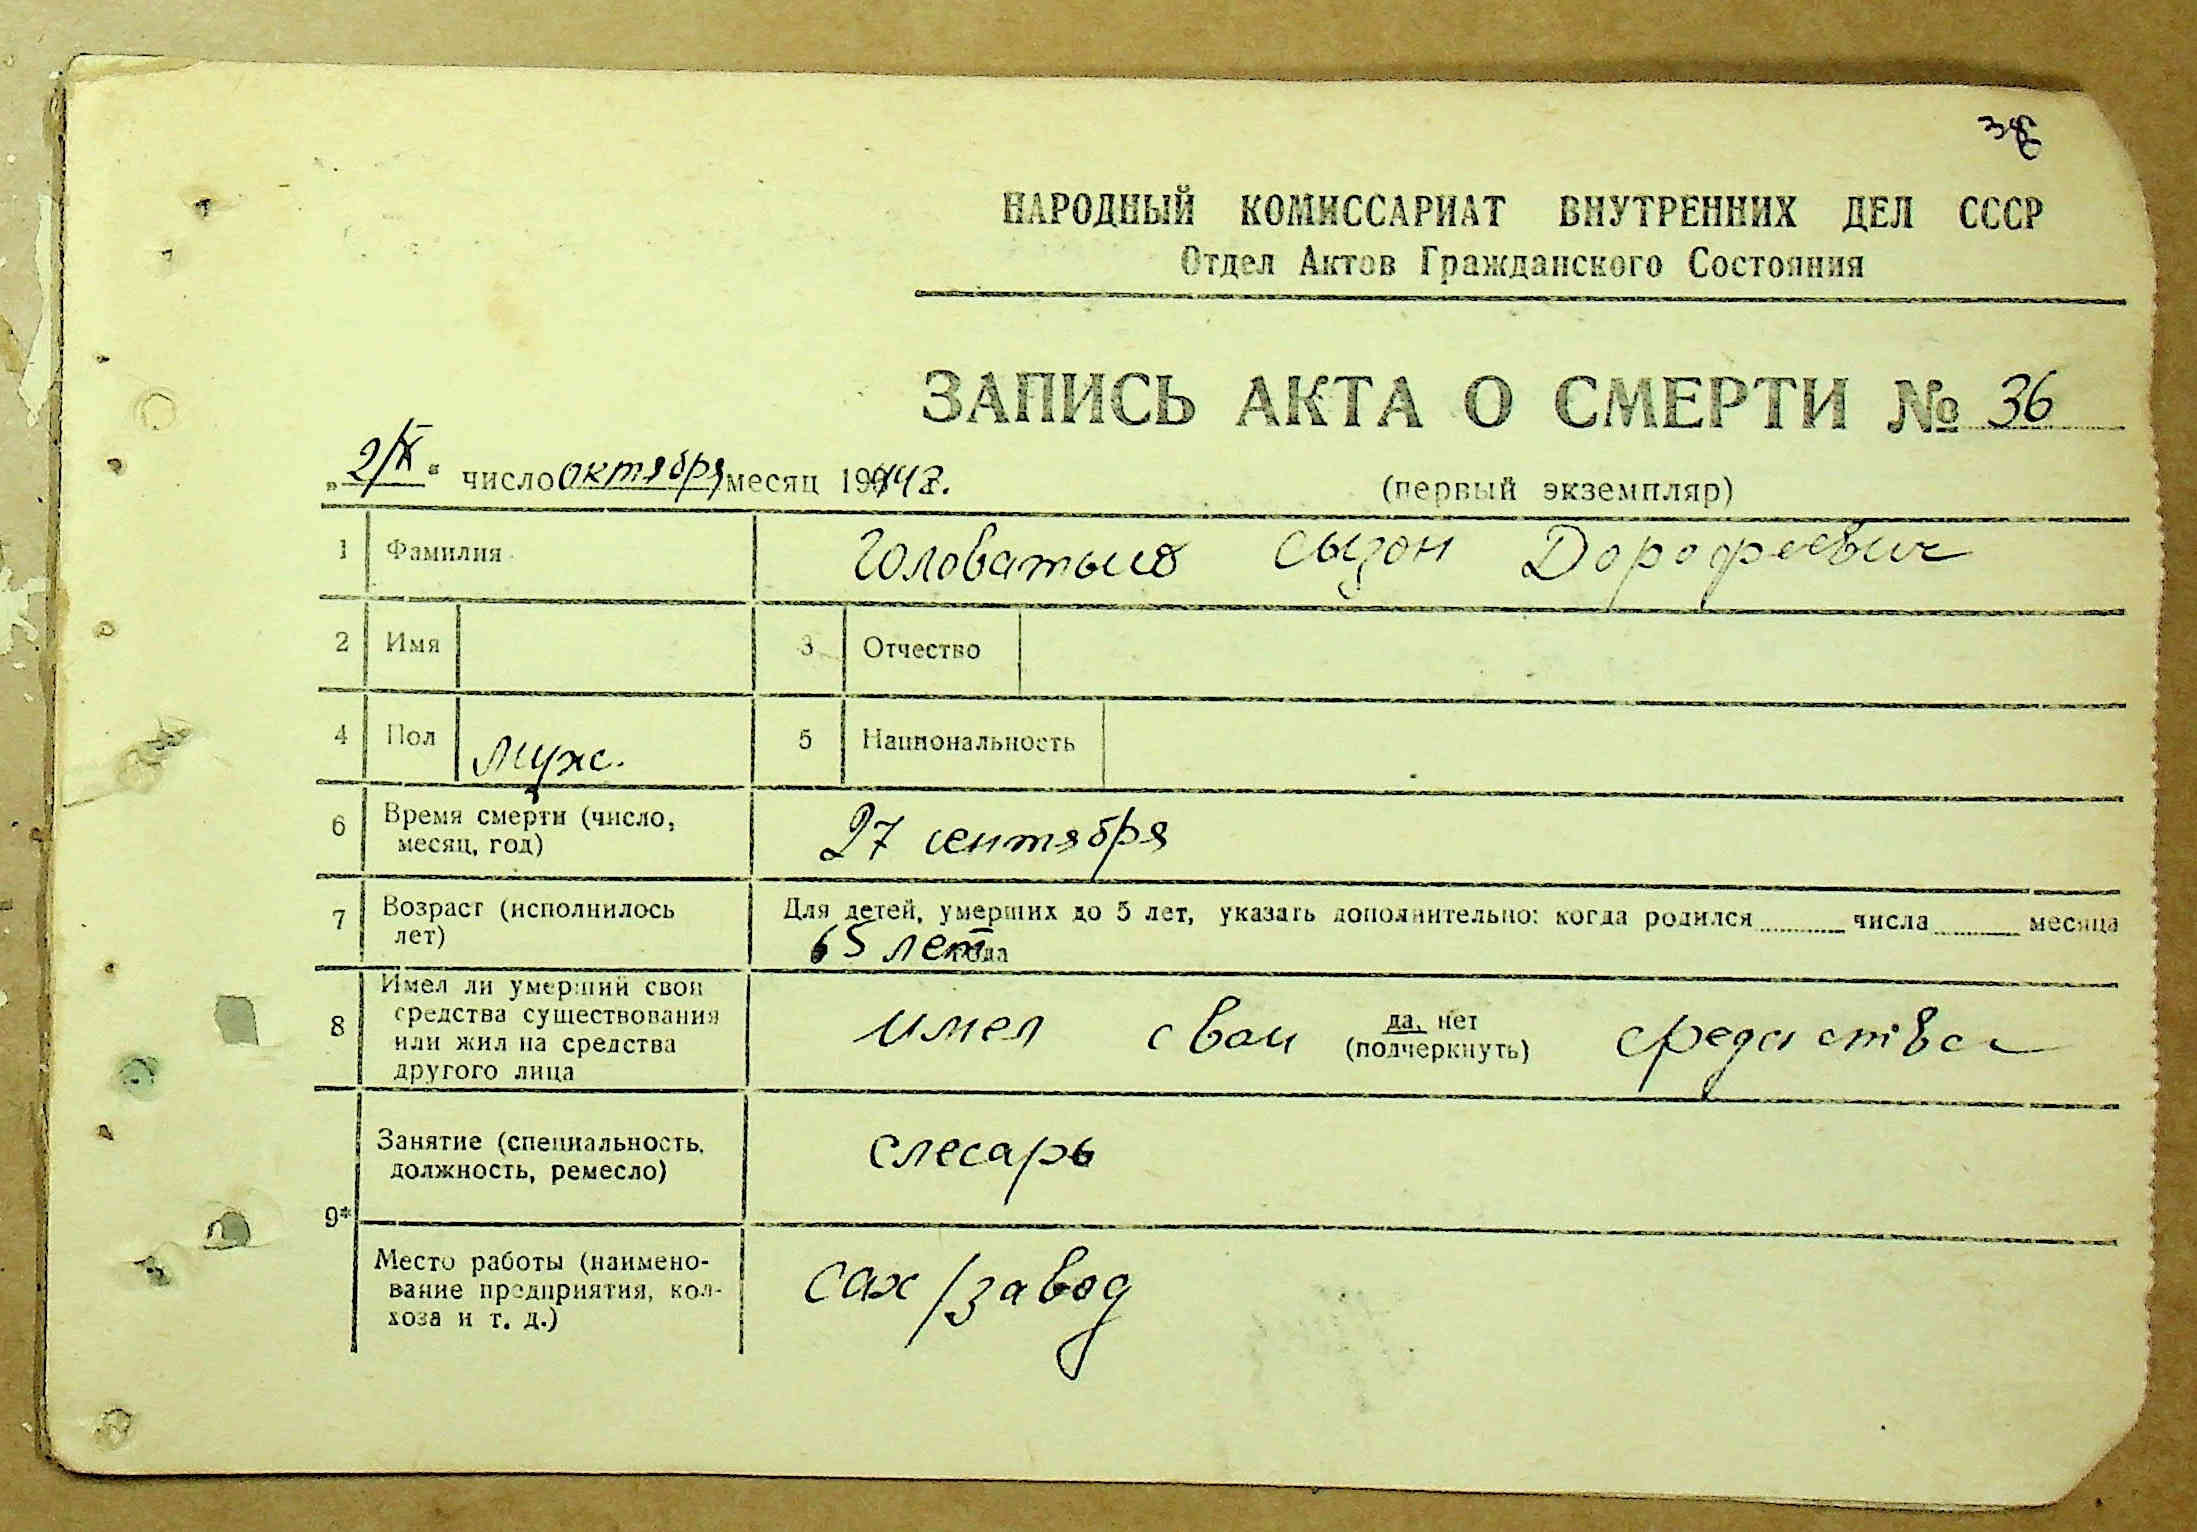 НАРОДНЫЙ КОМИССАРИАТ ВНУТРЕННИХ ДЕЛ СССР
Отдел Актов Гражданского Состояния
ЗАПИСЬ АКТА О СМЕРТИ № 36
„2/X“ число октября месяц 1944г.
(первый экземпляр)
1 Фамилия Головатый Сызон Дорофеевич
2 Имя 3 Отчество
4 Пол Муж. 5 Национальность
6 Время смерти (число, месяц, год) 27 сентября
7 Возраст (исполнилось лет) Для детей, умерших до 5 лет, указать дополнительно: когда родился числа месяца
65 лет года
8 Имел ли умерший свои средства существования или жил на средства другого лица имел свои да, нет (подчеркнуть) средства
9* Занятие (специальность, должность, ремесло) слесарь
Место работы (наименование предприятия, колхоза и т. д.) сах/завод